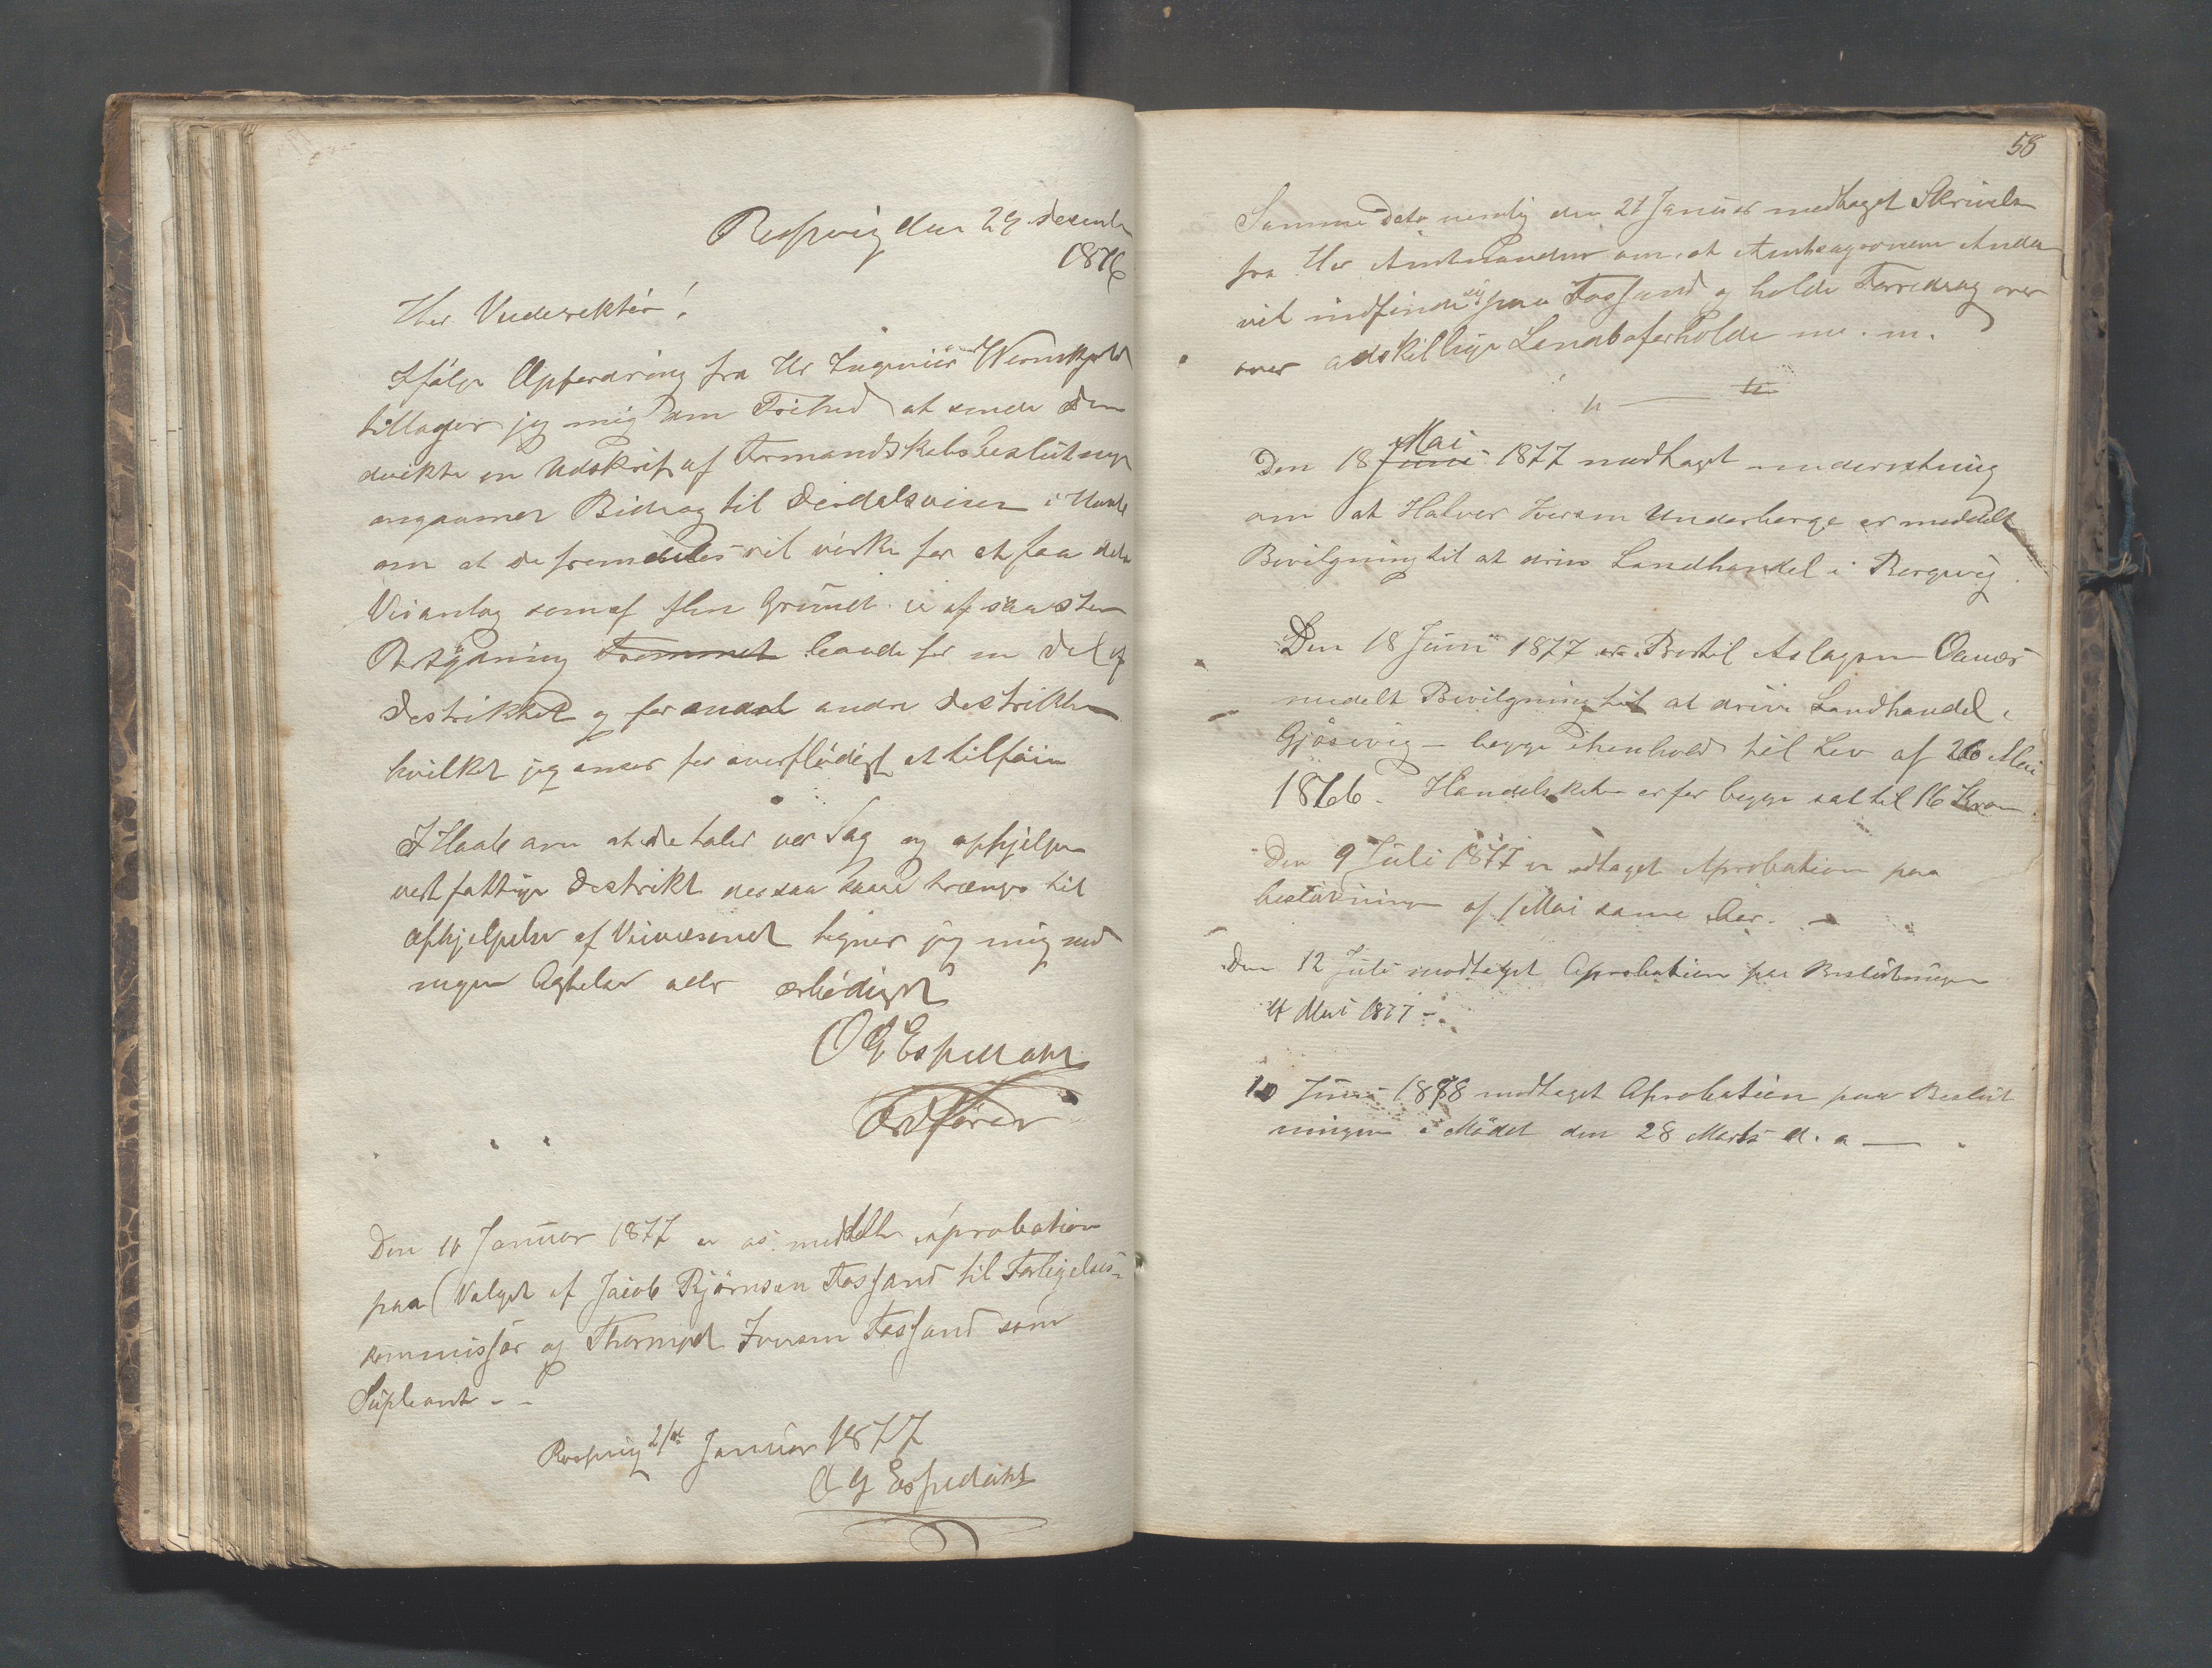 Respvig den 29 decemb
1876
Her Veiderektör!
Ifölge Opfordring fra Hr Ingeniör Wernskjold
tillager jeg mig den Frihed at sende Dem
dirkte en Udskrift af Formandskabsbeslutninger
angaaener Bidrag til Dirdalsveien i Haab
om at de fremdeles vil virke for at faa dette
Veianlæg som af flere Grunde er af saa stor
Betydning Fremmet baade for en Del af
Destriktet og for andre Destrikter
hvilket jeg anser for overflödigt at tilföie
I Haab om at de taler vor Sag og ophjelper
vort fattige Destrikt der saa haard trænger til
ophjelpelse af Veivæsenet tegner jeg mig med
megen Agtelse ærbödigst
O G Espedahl
Ordförer
Den 10 Januar 1877 er os meddelt Aprobation
paa Valget af Jacob Björnsen Fossand til Forligelses-
kommissær og Thormod Iversen Fossand som
Supleant - -
Respvig 21de Januar 1877
O G Espedahl
58
Samme Dato nemlig den 21 Januar modtaget Skrivelse
fra Hr Amtmanden om, at Amtsagronom Ander
vil indfinde sig paa Fossand og holde Forredrag over
over adskillige Landboforholde m. m.
Mai
Den 18 Juni 1877 modtaget underretning
om at Halvor Iversen Underberge er meddelt
Bevilgning til at drive Landhandel i Bergevig.
Den 18 Juni 1877 er Bertil Aslagsen Oanes
medelt Bevilgning til at drive Landhandel i
Gjösevig - begge i henhold til Lov af 26 Mai
1866. Handelsskatten er for begge sat til 16 Kroner.
Den 9 Juli 1877 er modtaget Aprobation paa
beslutninger af 1 Mai samme Aar. -
Den 12 Juli modtaget Aprobation paa Beslutningen
4 Mai 1877 -
10 Juni 1878 modtaget Aprobation paa Beslut
ningen i Mödet den 28 Marts d. a -